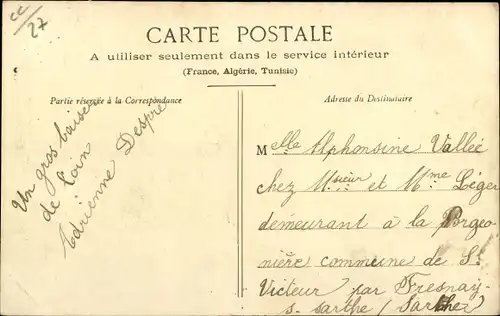 CC
27
CARTE POSTALE
A utiliser seulement dans le service intérieur
(France, Algérie, Tunisie)
Partie réservée à la Correspondance
Un gros baiser
de loin
Adrienne Despré
Adresse du Destinataire
Melle Alphonsine Vallée
chez Msieur et Mme Léger
demeurant à la Borgeo
nière commune de St
Victeur par Fresnay
s- sarthe (Sarthe)